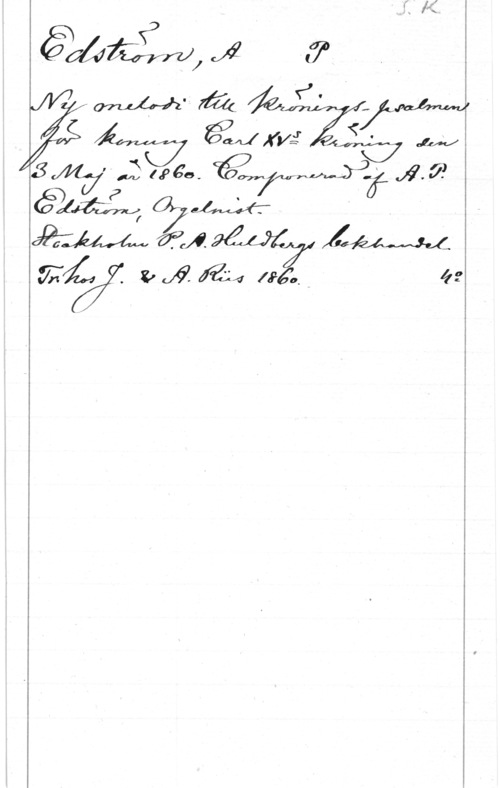 S. K
Edström, A P
Ny melodi till krönings-psalmen
för konung Carl XVs kröning den
3 Maj år 1860. Componerad af A. P.
Edström, Orgelnist.
Stockholm P. A. Huldbergs bokhandel.
Tr. hos J. & A. Riis 1860. 4o